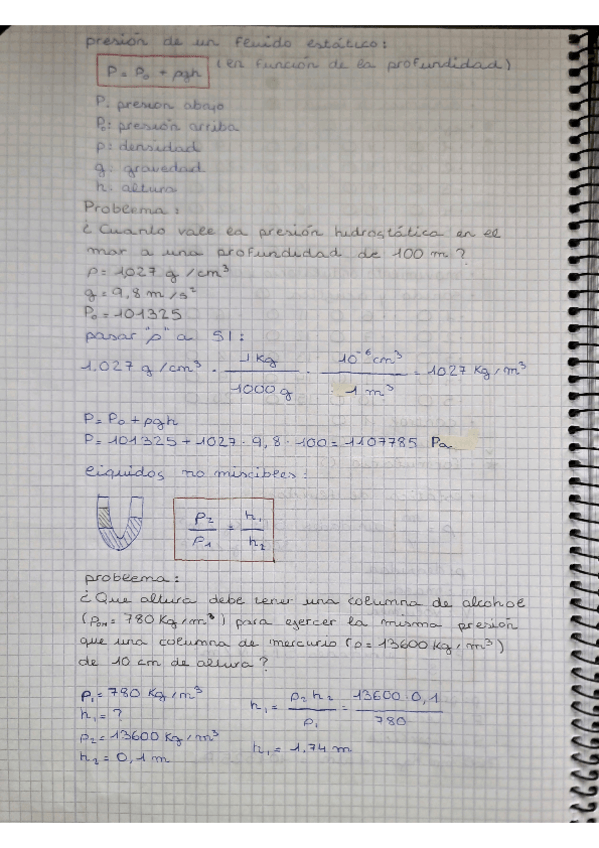 presión de un fluido estático:
P = P₀ + ρgh (en función de la profundidad)
P: presión abajo
P₀: presión arriba
ρ: densidad
g: gravedad
h: altura
Problema:
¿Cuanto vale la presión hidrostática en el
mar a una profundidad de 100 m?
ρ = 1,027 g/cm³
g = 9,8 m/s²
P₀ = 101325
pasar "ρ" a SI:
1.027 g/cm³ · 1 Kg / 1000 g · 10⁻⁶ cm³ / 1 m³ = 1027 Kg/m³
P = P₀ + ρgh
P = 101325 + 1027 · 9,8 · 100 = 1107785 Pa
líquidos no miscibles:
ρ₂ / ρ₁ = h₁ / h₂
problema:
¿Que altura debe tener una columna de alcohol
(ρOH = 780 Kg/m³) para ejercer la misma presión
que una columna de mercurio (ρ = 13600 Kg/m³)
de 10 cm de altura?
ρ₁ = 780 Kg/m³
h₁ = ?
ρ₂ = 13600 Kg/m³
h₂ = 0,1 m
h₁ = ρ₂ h₂ / ρ₁ = 13600 · 0,1 / 780
h₁ = 1,74 m